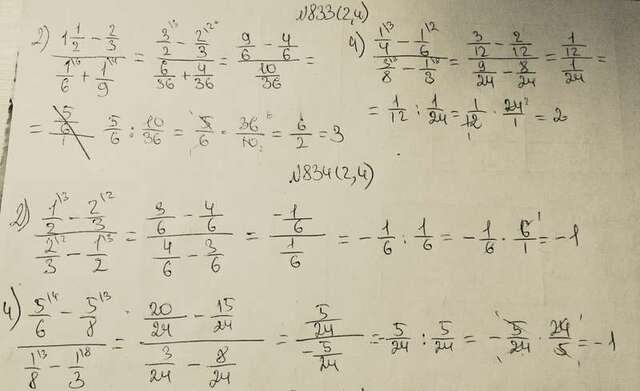 №833(2,4)
2) (1 1/2 \3 - 2/3 \2) / (1/6 \6 + 1/9 \4) = (3/2 \3 - 2/3 \2) / (6/36 + 4/36) = (9/6 - 4/6) / (10/36) =
= 5/6 : 10/36 = 5/6 · 36/10 = 6/2 = 3
4) (1/4 \3 - 1/6 \2) / (3/8 \3 - 1/3 \8) = (3/12 - 2/12) / (9/24 - 8/24) = (1/12) / (1/24) =
= 1/12 : 1/24 = 1/12 · 24/1 = 2
№834(2,4)
2) (1/2 \3 - 2/3 \2) / (2/3 \2 - 1/2 \3) = (3/6 - 4/6) / (4/6 - 3/6) = (-1/6) / (1/6) = -1/6 : 1/6 = -1/6 · 6/1 = -1
4) (5/6 \4 - 5/8 \3) / (1/8 \3 - 1/3 \8) = (20/24 - 15/24) / (3/24 - 8/24) = (5/24) / (-5/24) = -5/24 : 5/24 = -5/24 · 24/5 = -1